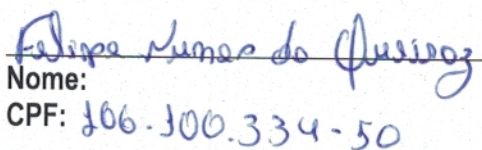 Felipe Nunes do Queiroz
Nome:
CPF: 106.100.334-50